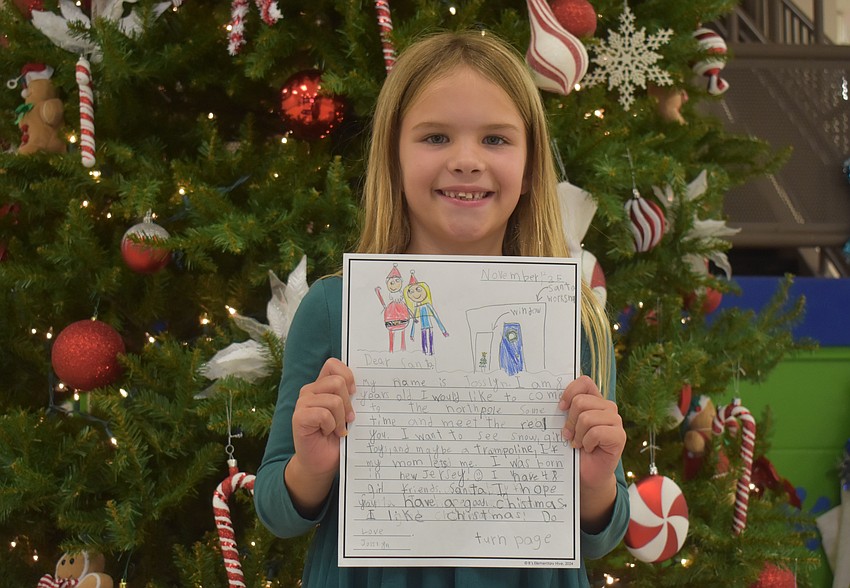 November 25
Santa
workshop
window
Dear Santa
my name is Joslyn I am 8
years old I would like to come
to the northpole some
time and meet the real
you. I want to see snow, girl
toy, and maybe a trampoline, If
my mom lets me. I was born
in new Jersey! I have 48
friends Santa. I hope
you have a good christmas.
I like christmas! Do
Love
Joslyn
turn page